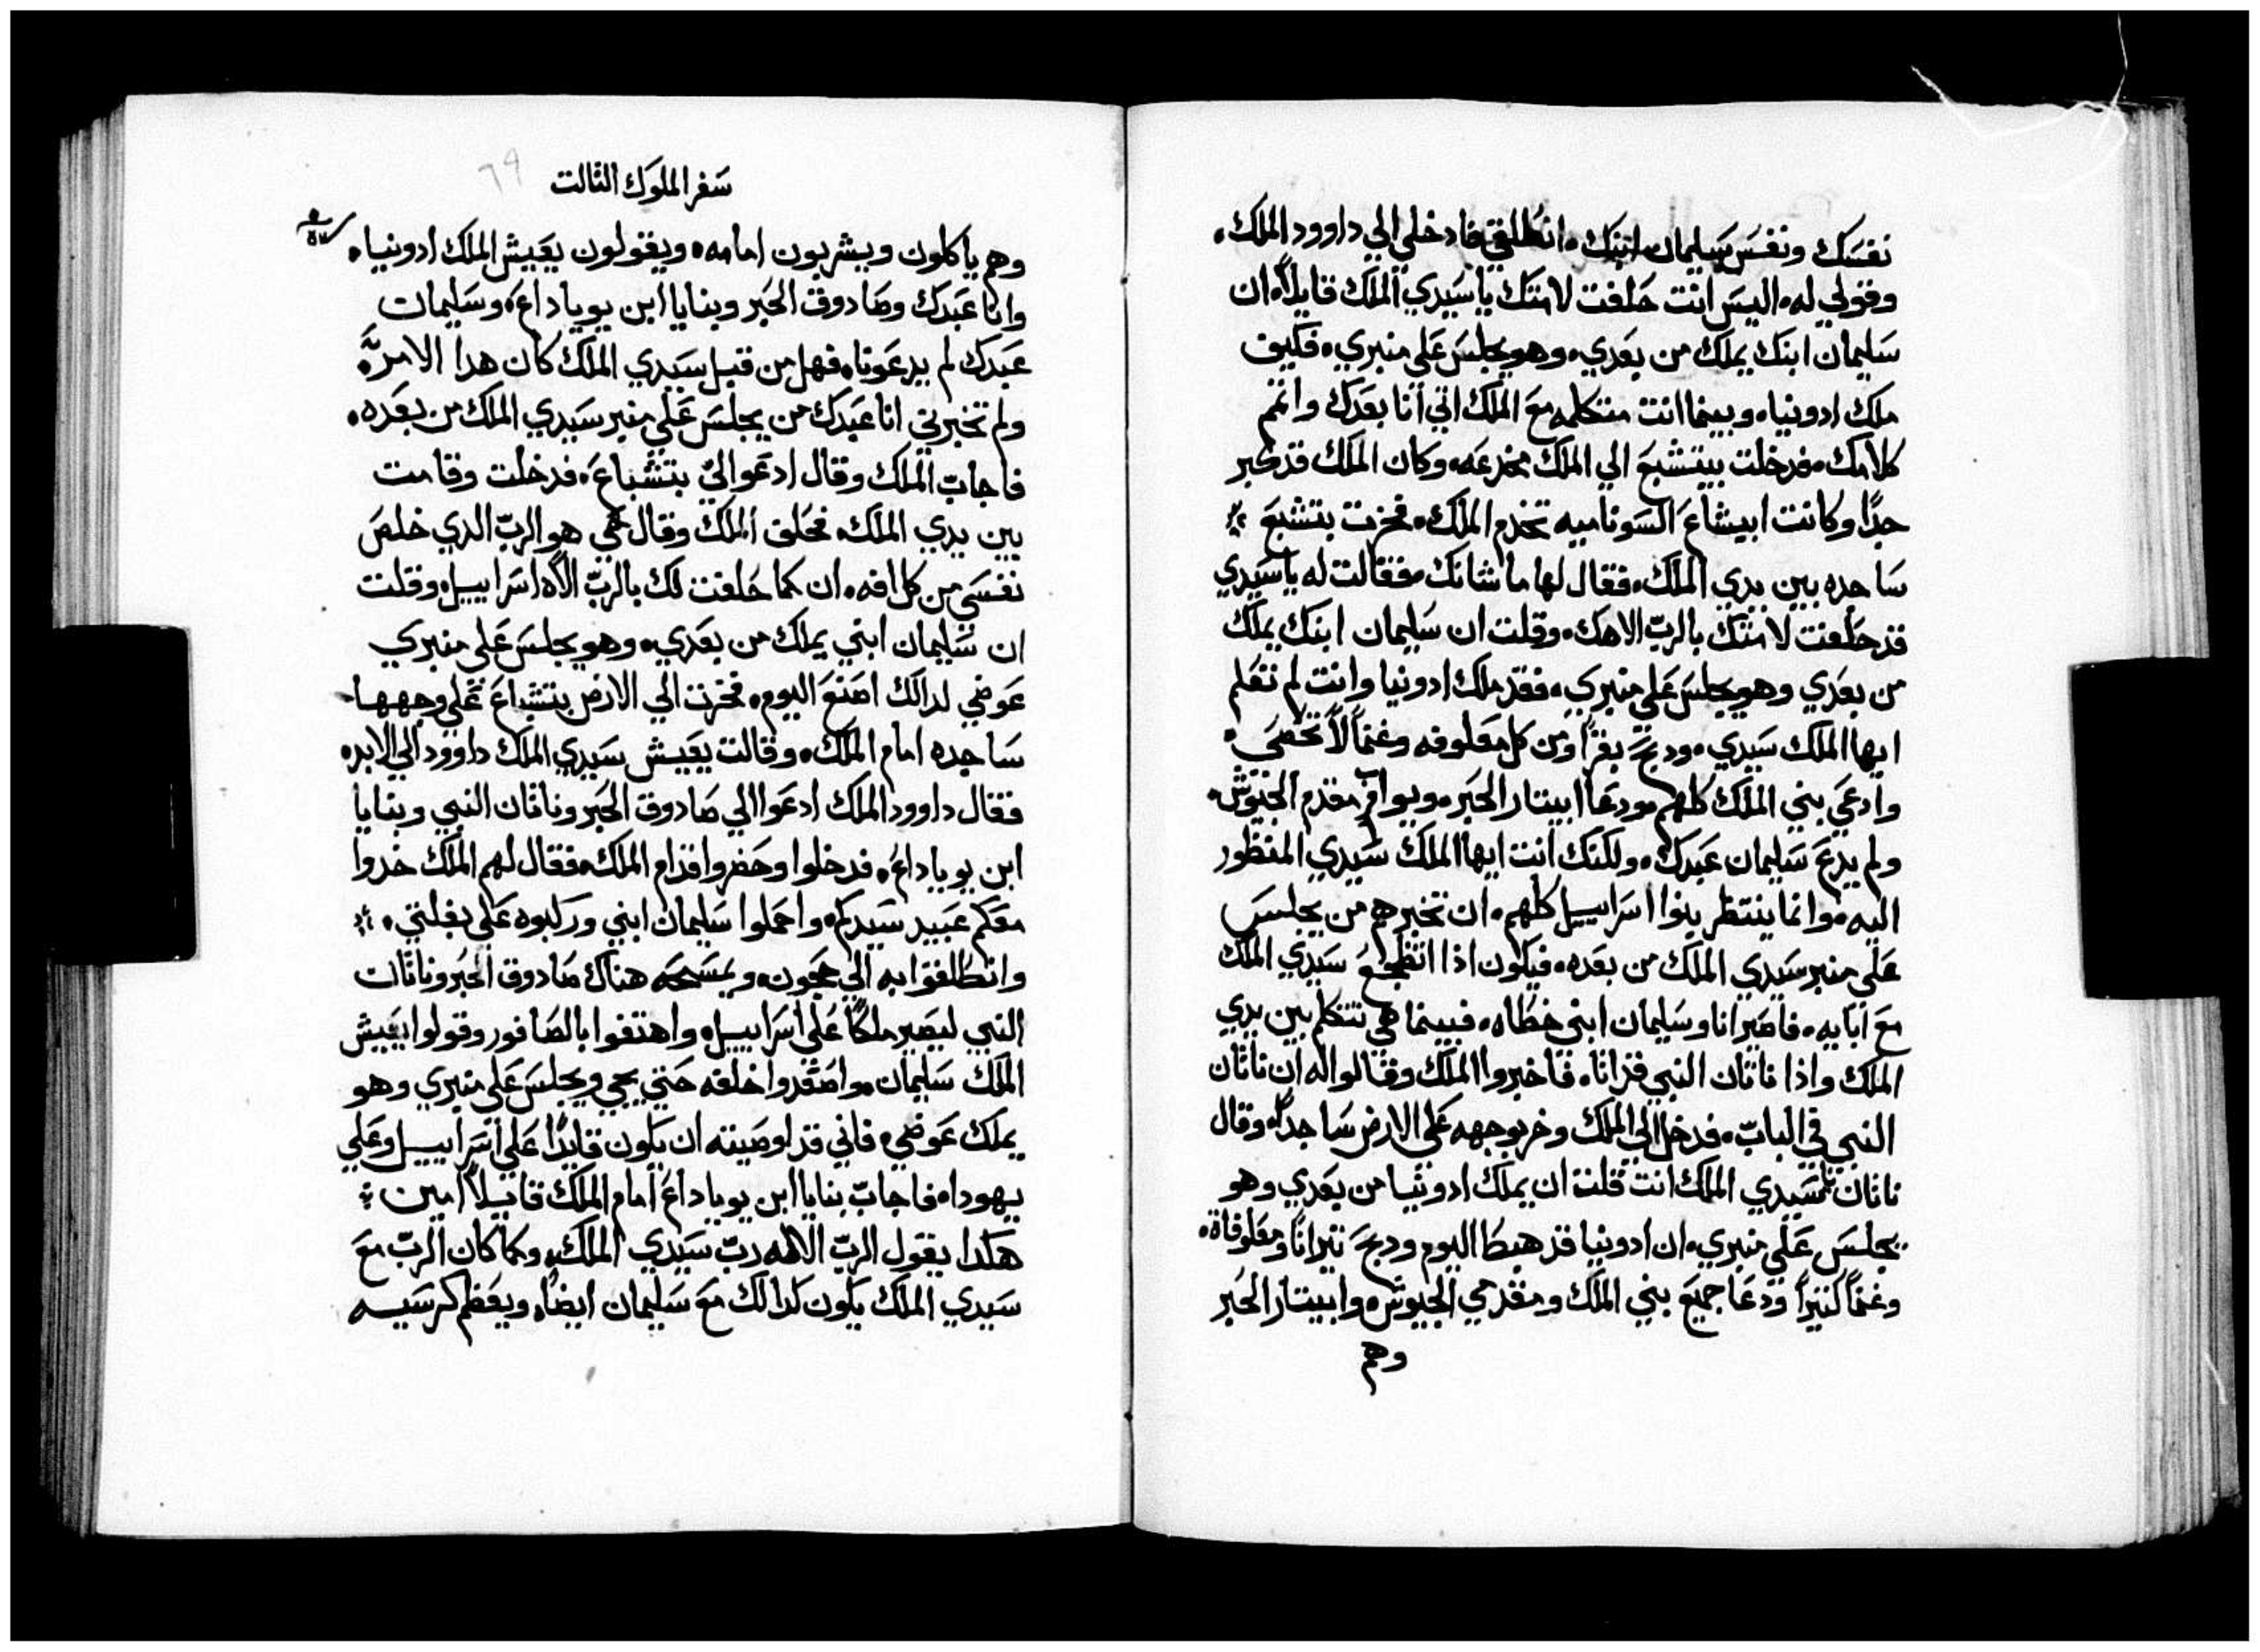 نفسك ونفس سليمان ابنك. انطلقي فادخلي الي داوود الملك.
وقولي له. اليس انت حلفت لامتك يا سيدي الملك قايلاً. ان
سليمان ابنك يملك من بعدي. وهو يجلس علي منبري. فكيف
ملك ادونيا. وبينما انت متكلمه مع الملك اتي انا بعدك واتمم
كلامك. فدخلت بيتشبع الي الملك مخدعه. وكان الملك قد كبر
جدًا وكانت ابيشاع السوناميه تخدم الملك. فخرت بتشبع
ساجده بين يدي الملك. فقال لها ما شانك. فقالت له يا سيدي
قد حلفت لامتك بالرب الاهك. وقلت ان سليمان ابنك يملك
من بعدي وهو يجلس علي منبري. فقد ملك ادونيا وانت لم تعلم
ايها الملك سيدي. ودبح بقرًا ومن كل معلوفه وغنماً لا تحصي.
وادعي بني الملك كلهم. ودعا ابيتار الحبر. ويواب مقدم الجيوش.
ولم يدع سليمان عبدك. ولكنك انت ايها الملك سيدي المنظور
اليه. وانما ينتظر بنوا اسراييل كلهم. ان تخبرهم من يجلس
علي منبر سيدي الملك من بعده. فيكون اذا انضجع سيدي الملك
مع ابايه. فاصير انا وسليمان ابني خطاه. فبينما هي تتكلم بين يدي
الملك واذا ناتان النبي قد اتا. فاخبروا الملك وقالوا له ان ناتان
النبي في الباب. فدخل الي الملك وخر بوجهه علي الارض ساجداً. وقال
ناتان يا سيدي الملك انت قلت ان يملك ادونيا من بعدي وهو
يجلس علي منبري. ان ادونيا قد هبط اليوم ودبح تيرانًا ومعلوفاة.
وغنماً كتيراً ودعا جميع بني الملك ومقدمي الجيوش. وابيتار الحبر
وهم
سفر الملوك التالت
٦٩
وهم ياكلون ويشربون امامه. ويقولون يعيش الملك ادونيا.
وانا عبدك وصادوق الحبر وبنايا ابن يوياداع. وسليمان
عبدك لم يدعونا. فهل من قبل سيدي الملك كان هدا الامر.
ولم تخبرني انا عبدك من يجلس علي منبر سيدي الملك من بعده.
فاجاب الملك وقال ادعوا لي بتشباع. فدخلت وقامت
بين يدي الملك. فحلف الملك وقال حي هو الرب الدي خلص
نفسي من كل افه. ان كما حلفت لك بالرب الاه اسراييل. وقلت
ان سليمان ابني يملك من بعدي. وهو يجلس علي منبري
عوضي لدالك اصنع اليوم. فخرت الي الارض بتشباع علي وجهها
ساجده امام الملك. وقالت يعيش سيدي الملك داوود الي الابد.
فقال داوود الملك ادعوا الي صادوق الحبر وناتان النبي وبنايا
ابن يوياداع. فدخلوا وحضروا قدام الملك. فقال لهم الملك خدوا
معكم عبيد سيدكم. واحملوا سليمان ابني وركبوه علي بغلتي.
وانطلقوا به الي جيحون. ويمسحه هناك صادوق الحبر وناتان
النبي ليصير ملكاً علي اسراييل. واهتفوا بالصافور وقولوا يعيش
الملك سليمان. واصعدوا خلفه حتي يجي ويجلس علي منبري وهو
يملك عوضي. فاني قد اوصيته ان يكون قايدًا علي اسراييل وعلي
يهودا. فاجاب بنايا ابن يوياداع امام الملك قايلاً امين
هكدا يقول الرب الاله رب سيدي الملك. وكما كان الرب مع
سيدي الملك يكون كدالك مع سليمان ايضًا. ويعظم كرسيه